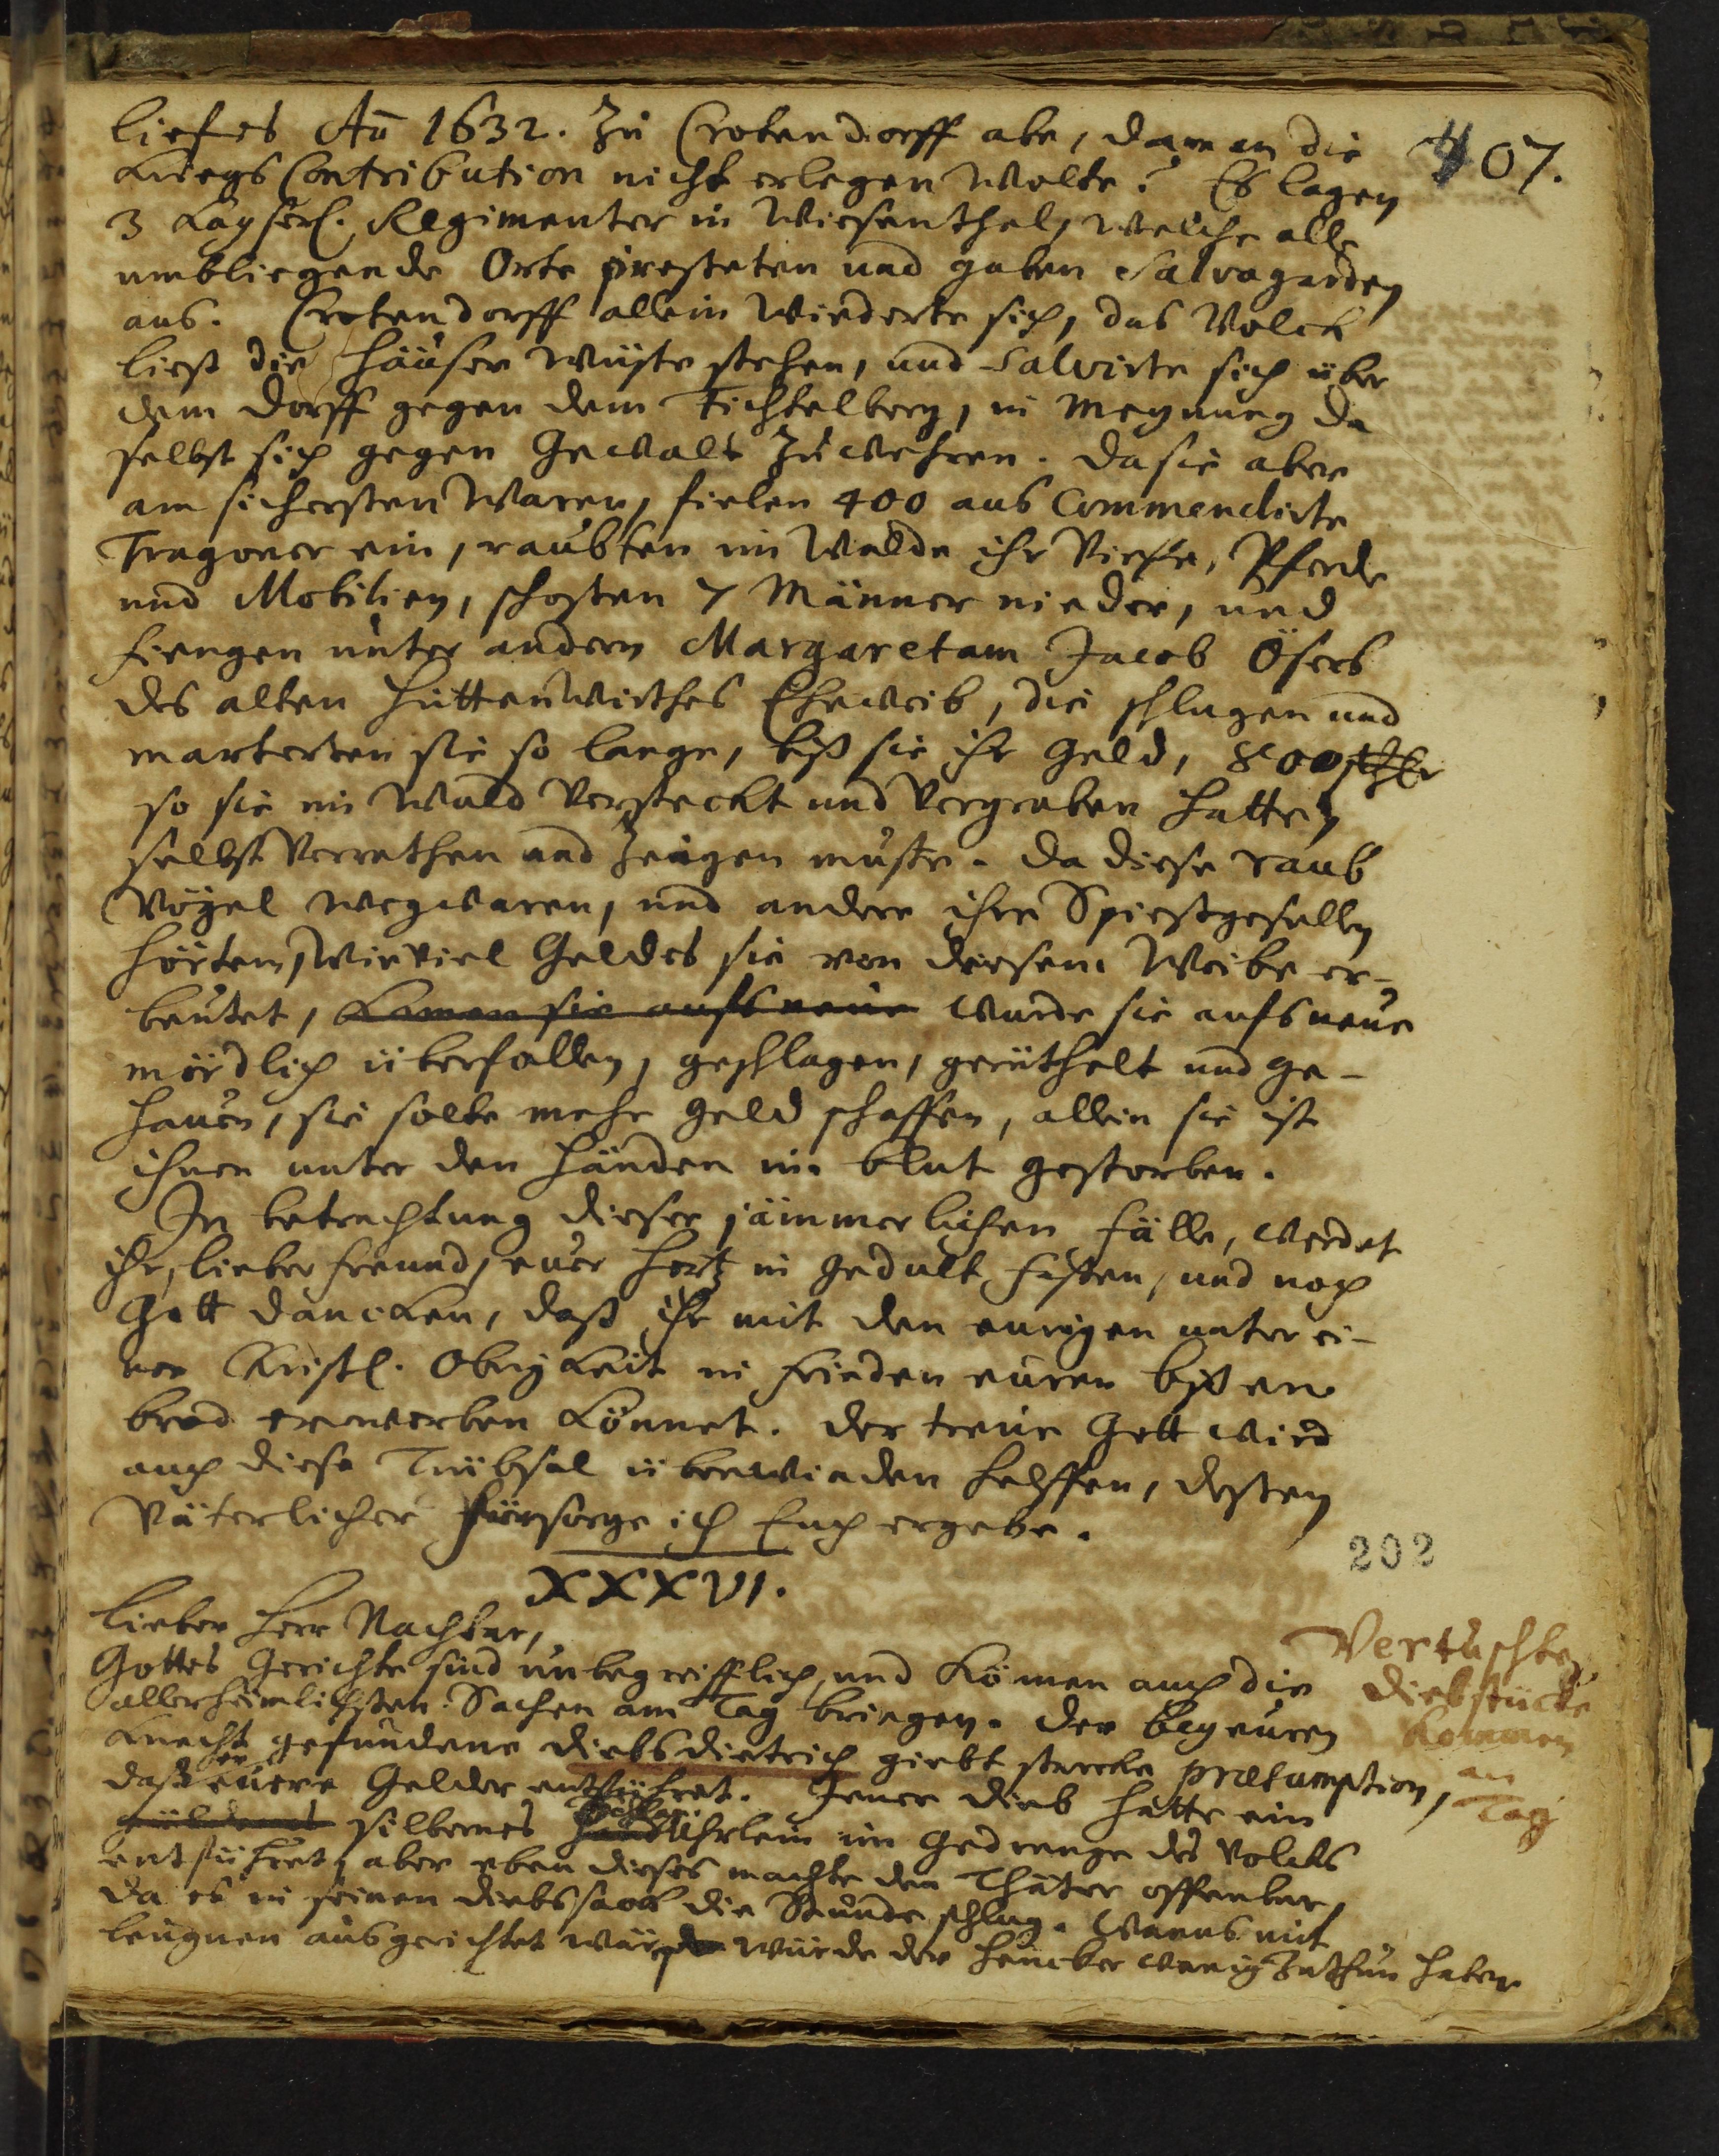 407.
lieff es Aõ 1632. Zu Crotendorff abe, da man die
Kriegs Contribution nicht erlegen wolte? Es lagen
3 Kayserl. Regimenter in Wiesenthal, welche alle
umbliegende Orte presteten und gaben Salvagarden
aus. Crotendorff allein wiederte sich, das Volck
liess die Häüser wüste stehen, und salvirte sich über
dem Dorff gegen dem Fichtelberg, in Meynung da
selbst sich gegen Gewalt zuwehren. Da sie aber
am sichersten waren, fielen 400 aus Commendirte
Tragoner ein, raubten im Walde ihr Viehe, Pferde
und Mobilien, schossen 7 Männer nieder, und
fiengen unter andern Margaretam Jacob Ösers
des alten Hüttenwirthes Eheweib, die schlugen und
marterten sie so lange, biß sie ihr Geld, 800 thlr
so sie im Wald versteckt und vergraben hatte,
selbst verrathen und zeigen muste. Da diese raub
Vögel weg waren, und andere ihre Spiessgesellen
hörten, wie viel Geldes sie von diesem Weibe er-
beutet, kamen sie aufs neue wurde sie aufs neue
mördlich überfallen, geschlagen, geüthelt und ge-
hauen, sie solte mehr geld schaffen, allein sie ist
ihnen unter den Händen im blut gestorben.
In betrachtung dieser jämmerlichen fälle, werdet
ihr, lieber freund, euer Hertz in gedult fassen, und noch
Gott dancken, daß ihr mit den eurigen unter ei-
ner Christl. Obrigkeit in frieden euren bissen
brod erwerben könnet. Der treue Gott wird
auch diese Trübsal überwinden helffen, dessen
Väterlicher fürsorge ich Euch ergebe.
202
XXXVI.
Lieber Herr Nachbar,
Gottes Gerichte sind unbegreifflich, und können auch die
allerheimlichsten Sachen am Tag bringen. Der bey euren
Knecht gefundene diebsdietrich giebt starcke præsumption,
daß er euere Gelder entführet. Jener dieb hatte ein
güldenes silbernes Uhrlein im Gedrenge des Volcks
entführet, aber eben dieses machte den Thäter offenbar,
da es in seinen diebssack die Stunde schlug. Wanns mit
leugnen ausgerichtet wär würde der Hencker wenig zuthun haben
Vertuschte
diebstücke
kommen
an
Tag